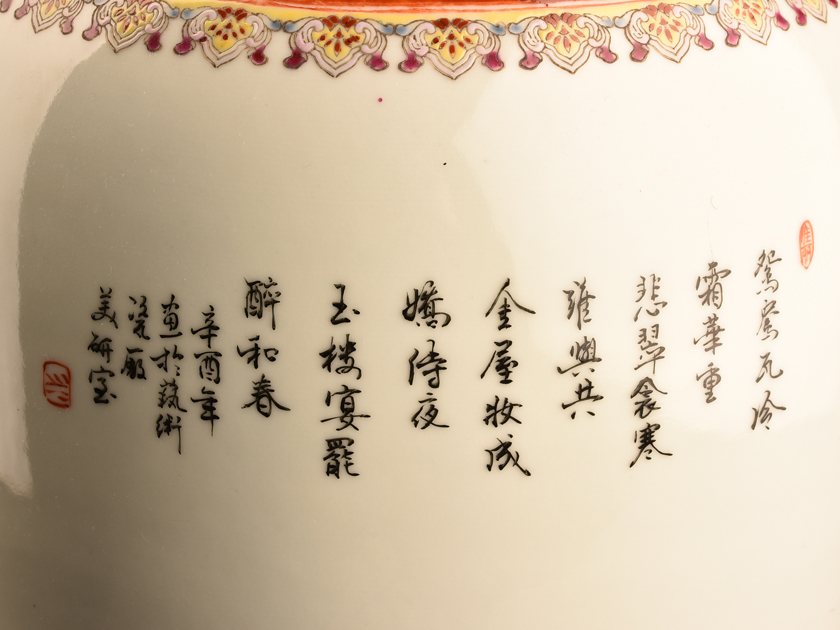 鴛鴦瓦冷
霜華重
悲翠衾寒
誰與共
金屋妝成
嬌侍夜
玉楼宴罷
醉和春
辛酉年
畫於藝術
瓷廠
美研室